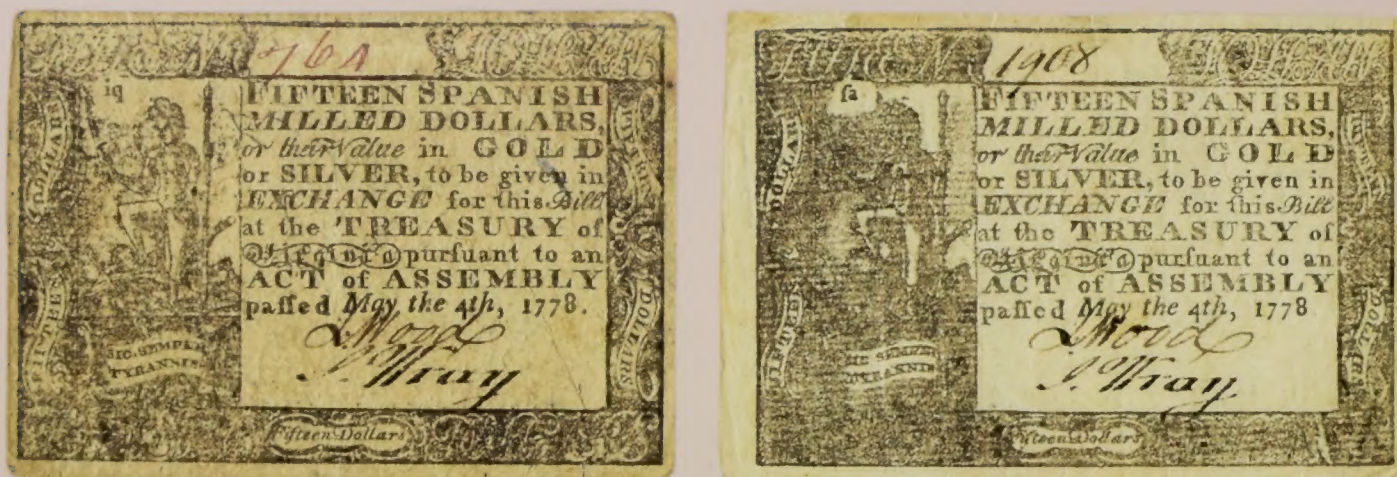 76A
iq
FIFTEEN SPANISH
MILLED DOLLARS,
or their Value in GOLD
or SILVER, to be given in
EXCHANGE for this Bill
at the TREASURY of
Virginia purſuant to an
ACT of ASSEMBLY
paſſed May the 4th, 1778.
Wood
J. Wray
DOLLARS
FIFTEEN
SIC SEMPER
TYRANNIS
DOLLARS
Fifteen Dollars
1908
ſa
FIFTEEN SPANISH
MILLED DOLLARS,
or their Value in GOLD
or SILVER, to be given in
EXCHANGE for this Bill
at the TREASURY of
Virginia purſuant to an
ACT of ASSEMBLY
paſſed May the 4th, 1778
Wood
J. Wray
DOLLAR
FIFTEEN
SIC SEMPER
TYRANNI
DOLLARS
Fifteen Dollars